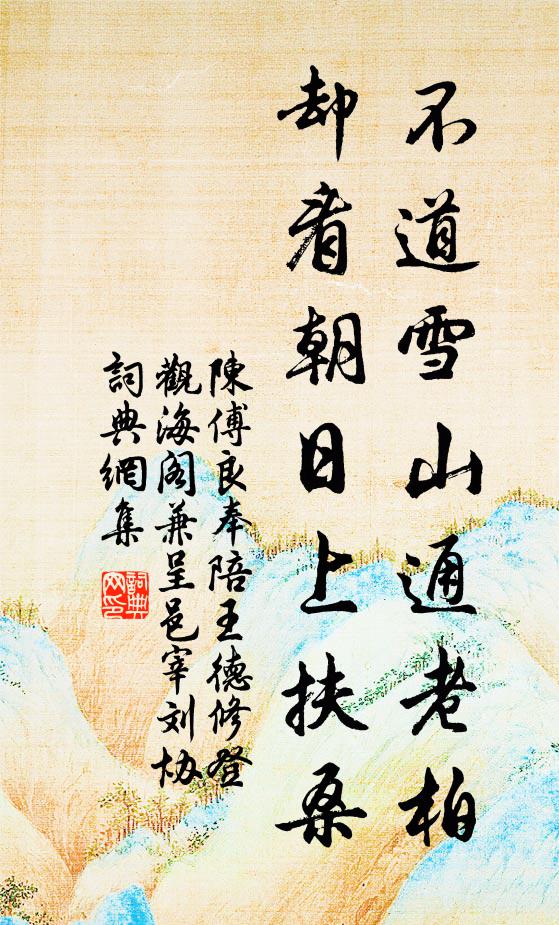 不道雪山通老柏
却看朝日上扶桑
陳傅良奉陪王德修登
觀海阁兼呈邑宰刘协
詞典網集
詞典网印